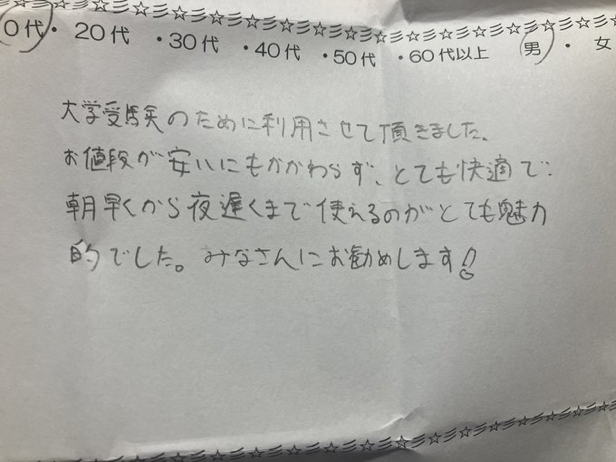 0代・20代・30代・40代・50代・60代以上 男・女
大学受験のために利用させて頂きました。
お値段が安いにもかかわらず、とても快適で
朝早くから夜遅くまで使えるのがとても魅力
的でした。みなさんにお勧めします!